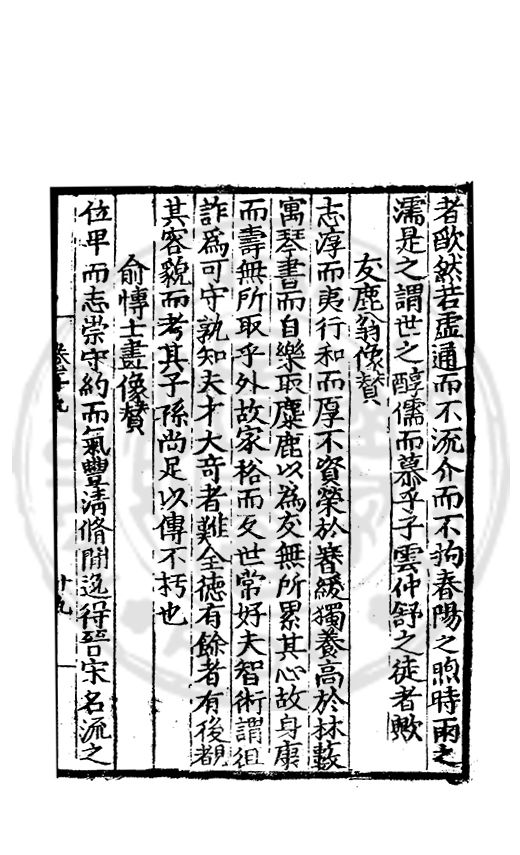 者歐然若虛通而不流介而不拘春陽之煦時雨之
濡是之謂世之醇儒而慕乎子雲仲舒之徒者歟
友鹿翁像贊
志淳而夷行和而厚不資榮於簪緩獨養高於林藪
寓琴書而自樂取麋鹿以為友無所累其心故身康
而壽無所取乎外故家裕而友世常好夫智術謂徂
詐為可守孰知夫才大奇者難全德有餘者有後覩
其容貌而考其子孫尚足以傳不朽也
俞慱士畫像贊
位卑而志崇守約而氣豐清脩閒逸得晉宋名流之
十九